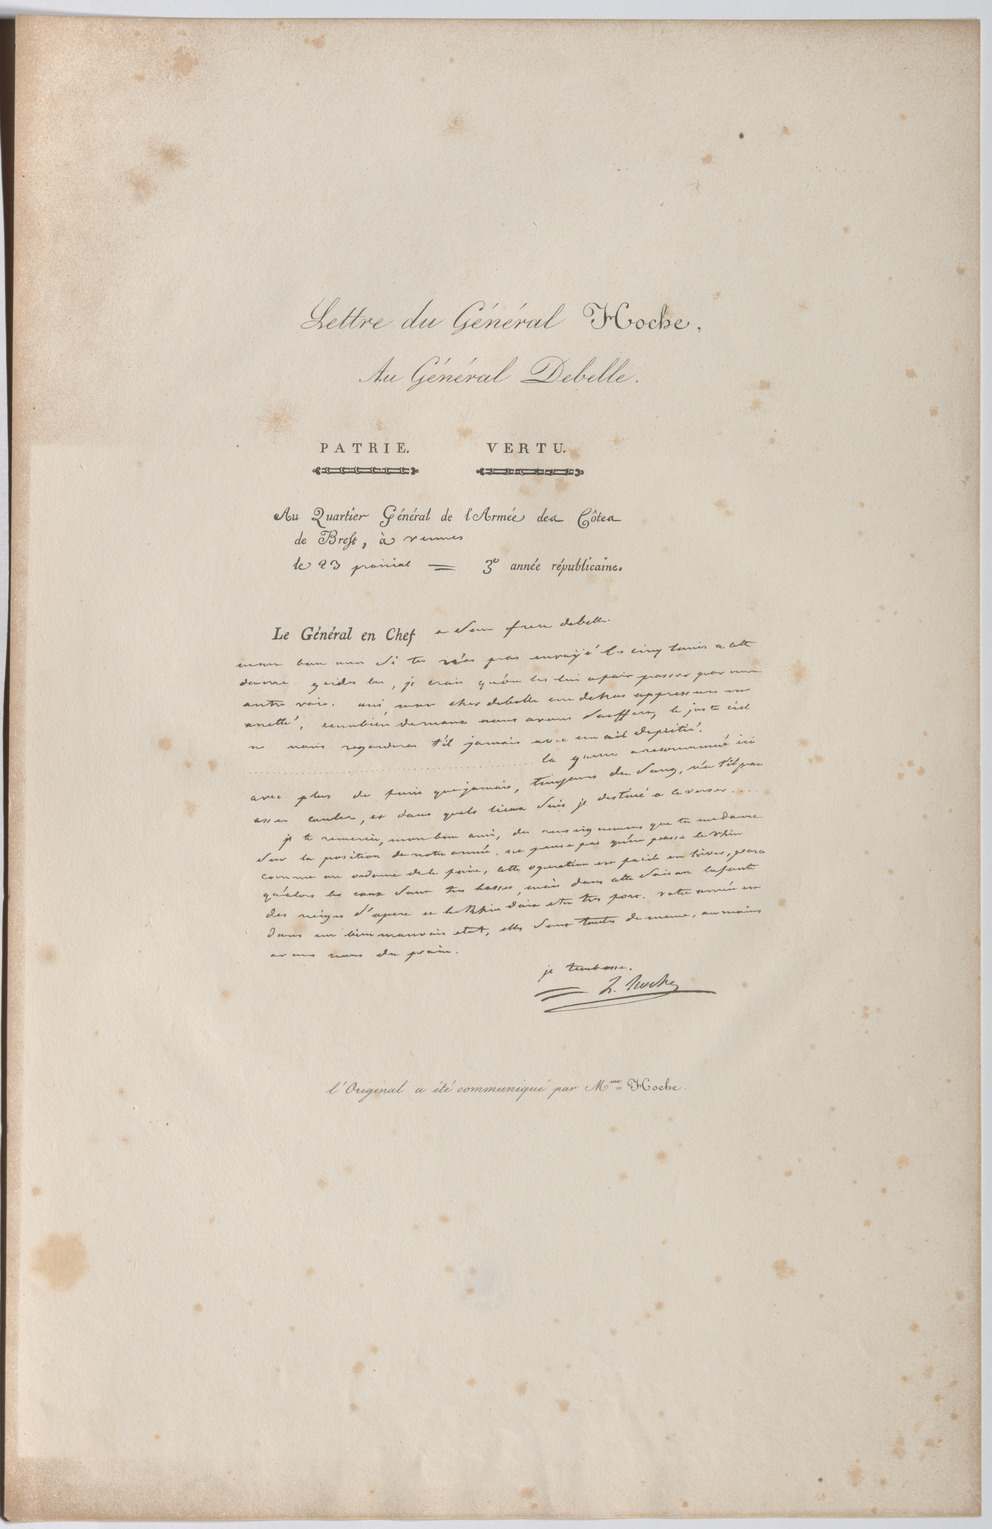 Lettre du Général Hoche,
Au Général Debelle.
PATRIE. VERTU.
Au Quartier Général de l'Armée des Côtes
de Brest, à vennes
le 23 prairial = 3e année républicaine.
Le Général en Chef a son frere debelle
mon bon ami si tu n'as pas envoyé les cinq louis a cette
gardes les, je crois qu'on les lui a fait passer par une
autre voie. oui mon cher debelle en dehors
combien de maux nous avons souffers, le juste ciel
ne nous regardera t'il jamais avec un œil de pitié.
la guerre a recommencé ici
avec plus de furie que jamais, toujours du sang, n'a t'il pas
asses couler, et dans quels lieux suis je destiné a le verser
je te remercie, mon bon ami, des renseignemens que tu me donne
sur la position de notre armée. ne pense pas qu'on passe le Rhin
comme on cette operation est facile en hiver, parce
qu'alors les eaux sont tres basses, mais dans cette saison la fonte
des neiges s'opere et le Rhin doit etre tres fort. votre armée est
dans un bien mauvais etat, elles sont toutes de meme, au moins
avons nous du pain.
je t'embrasse.
L. Hoche
l'Original a été communiqué par Mme Hoche.